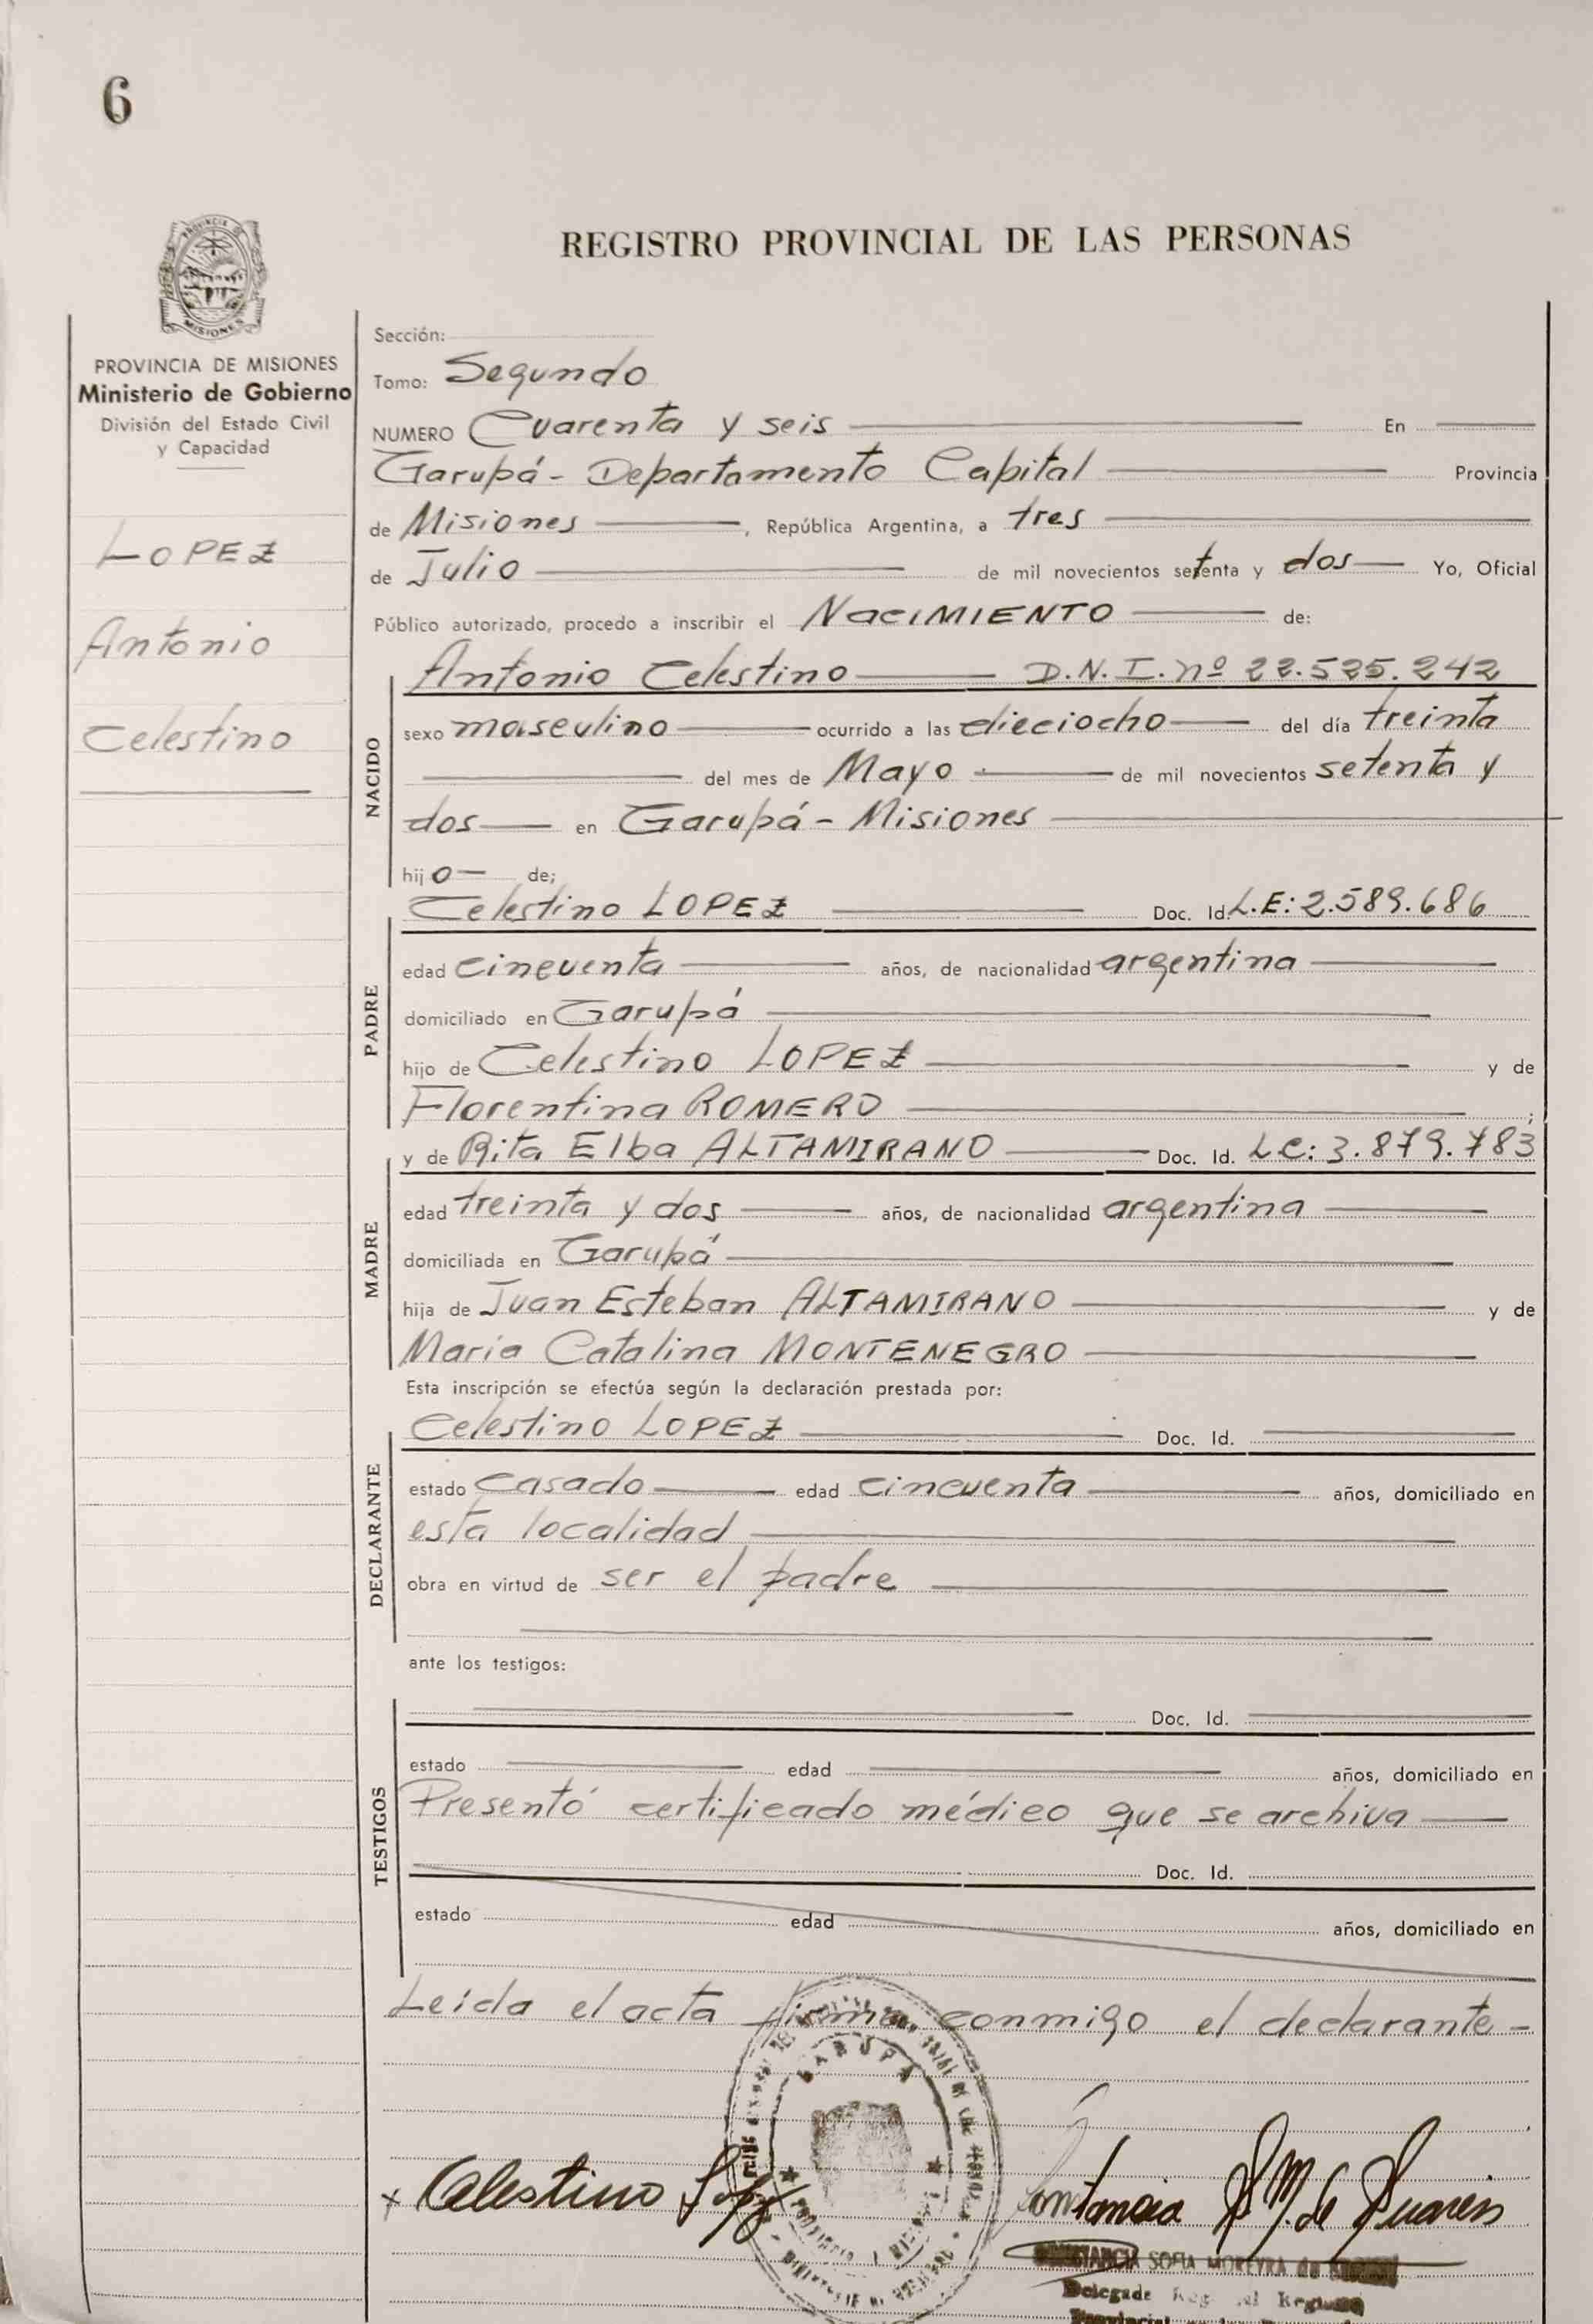 6
REGISTRO PROVINCIAL DE LAS PERSONAS
MISIONES
PROVINCIA DE MISIONES
Ministerio de Gobierno
División del Estado Civil
y Capacidad
LOPEZ
Antonio
Celestino
Sección:
Tomo: Segundo
NUMERO Cuarenta y seis En
Garupá - Departamento Capital Provincia
de Misiones , República Argentina, a tres
de Julio de mil novecientos setenta y dos Yo, Oficial
Público autorizado, procedo a inscribir el NACIMIENTO de:
Antonio Celestino D.N.I. nº 22.525.242
NACIDO
sexo masculino ocurrido a las dieciocho del día treinta
del mes de Mayo de mil novecientos setenta y
dos en Garupá - Misiones
hijo de;
Celestino LOPEZ Doc. Id. L.E: 2.589.686
PADRE
edad cincuenta años, de nacionalidad argentina
domiciliado en Garupá
hijo de Celestino LOPEZ y de
Florentina ROMERO ;
y de Rita Elba ALTAMIRANO Doc. Id. L.C: 3.879.783
MADRE
edad treinta y dos años, de nacionalidad argentina
domiciliada en Garupá
hija de Juan Esteban ALTAMIRANO y de
María Catalina MONTENEGRO
Esta inscripción se efectúa según la declaración prestada por:
Celestino LOPEZ Doc. Id.
DECLARANTE
estado casado edad cincuenta años, domiciliado en
esta localidad
obra en virtud de ser el padre
ante los testigos:
Doc. Id.
TESTIGOS
estado edad años, domiciliado en
Presentó certificado médico que se archiva
Doc. Id.
estado edad años, domiciliado en
Leída el acta firma conmigo el declarante -
GARUPA
x Celestino López
Constancia S. M. de Suarez
CONSTANCIA SOFIA MOREYRA de
Delegada